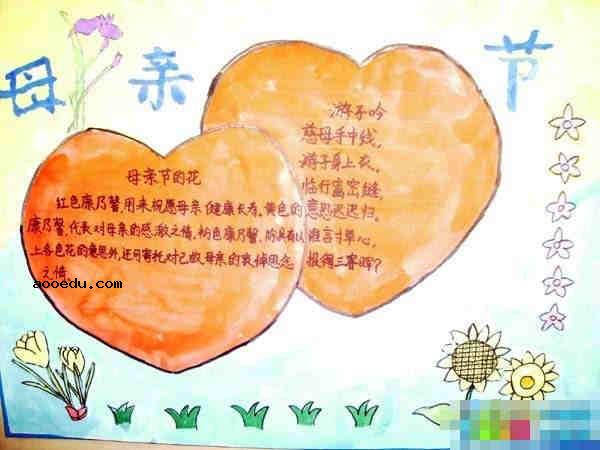 母亲节
游子吟
慈母手中线,
游子身上衣。
临行密密缝,
意恐迟迟归。
谁言寸草心,
报得三春晖?
母亲节的花
红色康乃馨,用来祝愿母亲健康长寿。黄色的
康乃馨,代表对母亲的感激之情。粉色康乃馨,除具有以
上各色花的意思外,还可寄托对已故母亲的哀悼思念
之情
aooedu.com